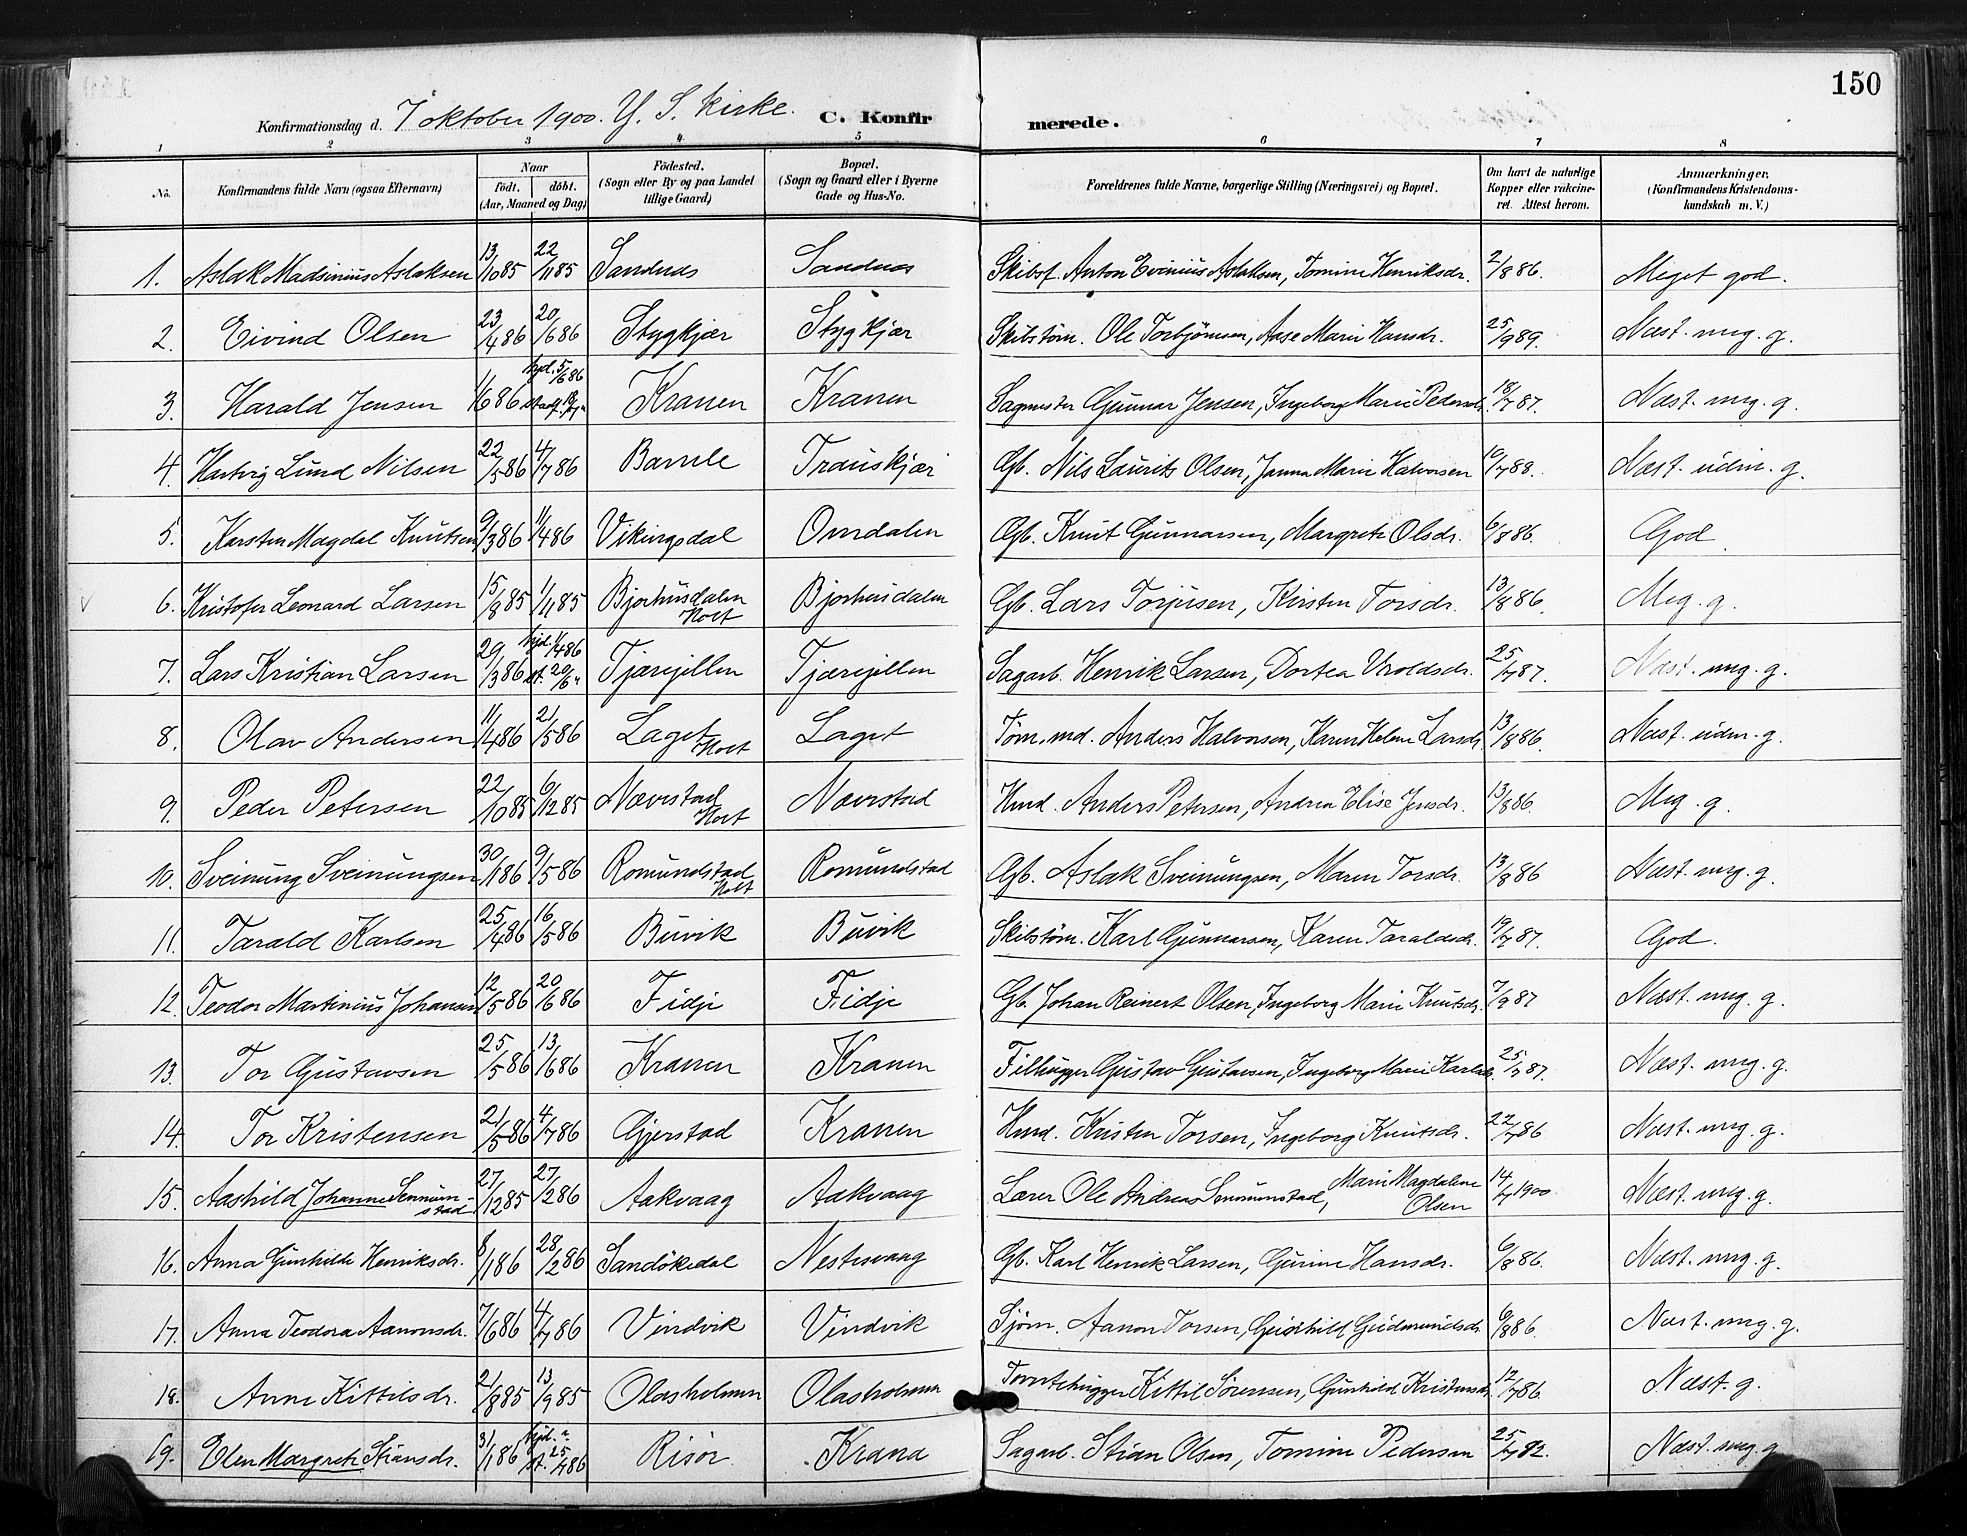 150
Konfirmationsdag d. 7 oktober 1900. Y. S. Kirke. C. Konfirmerede.
1 2 3 4 5 6 7 8
No. Konfirmandens fulde Navn (ogsaa Efternavn) Naar født. døbt. (Aar, Maaned og Dag) Fødested. (Sogn eller By og paa Landet tillige Gaard) Bopæl. (Sogn og Gaard eller i Byerne Gade og Hus-No. Forældrenes fulde Navne, borgerlige Stilling (Næringsvei) og Bopæl. Om havt de naturlige Kopper eller vakcineret. Attest herom. Anmærkninger. (Konfirmandens Kristendomskundskab m. V.)
1. Aslak Madsinius Aslaksen 13/10 85 22/11 85 Sandnes Sandnes Skibsf. Anton Evinius Aslaksen, Tomine Henriksdr. 2/8 86. Meget god.
2. Eivind Olsen 23/4 86 20/6 86 Stygkjær Stygkjær Skibstøm. Ole Torbjørnsen, Aase Marie Hansdr. 25/9 89. Næst. meg. g.
3. Harald Jensen 1/6 86 hjd. 5/6 86 stadf. Kranen Kranen Sagmester Gunnar Jensen, Ingeborg Marie Pedersdr. 18/7 87. Næst. meg. g.
4. Hartvig Lund Nilsen 22/5 86 4/7 86 Bamle Trauskjær Gb. Nils Laurits Olsen, Janna Marie Halvorsen 10/7 88. Næst. udm. g.
5. Karsten Magdal Knutsen 9/3 86 11/4 86 Vikingsdal Omdalen Gb. Knut Gunnarsen, Margrete Olsdr. 6/8 86. God
6. Kristofer Leonard Larsen 15/8 85 1/11 85 Bjorhusdalen Holt Bjorhusdalen Gb. Lars Torjusen, Kirsten Torsdr. 13/8 86. Meg. g.
7. Lars Kristian Larsen 29/3 86 hjd. 1/4 86 st. 20/6 " Tjærejillen Tjærejillen Sagarb. Henrik Larsen, Dortea Vroldsdr. 25/7 87. Næst. meg. g.
8. Olav Andersen 11/4 86 2/5 86 Laget Holt Laget Tøm.md. Anders Halvorsen, Karen Helene Larsdr. 13/8 86. Næst. udm. g.
9. Peder Petersen 22/10 85 6/12 85 Nævestad Holt Nævestad Hmd. Anders Petersen, Andrea Elise Jensdr. 13/8 86. Meg. g.
10. Sveinung Sveinungsen 30/1 86 9/5 86 Romundstad Holt Romundstad Gb. Aslak Sveinungsen, Maren Torsdr. 13/8 86 Næst. meg. g.
11. Tarald Karlsen 25/4 86 16/5 86 Buvik Buvik Skibstøm. Karl Gunnarsen, Karen Taraldsdr. 19/7 87. God.
12. Teodor Martinius Johansen 12/5 86 20/6 86 Fidje Fidje Gb. Johan Reinert Olsen, Ingeborg Marie Knutsdr. 7/9 87 Næst. meg. g.
13. Tor Gustavsen 25/5 86 13/6 86 Kranen Kranen Filhugger Gustav Gustavsen, Ingeborg Marie Karlsdr. 25/7 87. Næst. meg. g.
14. Tor Kristensen 2/5 86 4/7 86 Gjerstad Kranen Hmd. Kristen Torsen, Ingeborg Knutsdr. 22/7 86 Næst. meg. g.
15. Aashild Johanne Sennumstad 27/12 85 27/2 86 Aakvaag Aakvaag Lærer Ole Andreas Sennumstad, Marie Magdalene Olsen 14/7 1900. Næst. meg. g.
16. Anna Gunhilde Henriksdr. 8/1 86 28/2 86 Sandøkedal Nestevaag Gb. Karl Henrik Larsen, Gurine Hansdr. 6/8 86. Næst. meg. g.
17. Anna Teodora Aanonsdr. 7/6 86 4/7 86 Vindvik Vindvik Sjøm. Aanon Torsen, Gunhild Gudmundsdr. 6/8 86. Næst. meg. g.
18. Anne Kittilsdr. 2/8 85 13/9 85 Olasholmen Olasholmen Tomtehugger Kittil Sørensen, Gunhild Kristensdr. 12/7 86 Næst. g.
19. Elen Margrete Stiansdr. 31/1 86 hjd. " st. 25/4 86 Risør Krana Sagarb. Stian Olsen, Tomine Pedersen 25/7 82. Næst. meg. g